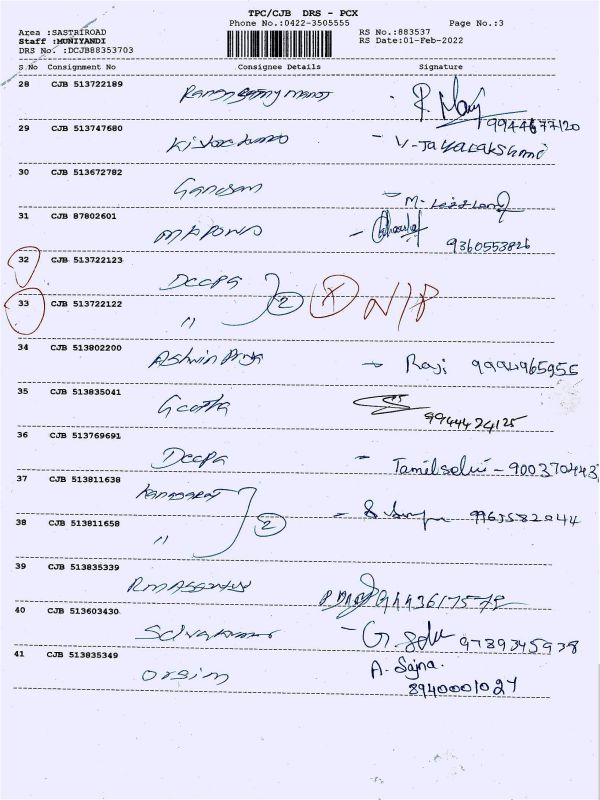 TPC/CJB DRS - PCX
Phone No.:0422-3505555 Page No.:3
Area :SASTRIROAD RS No.:883537
Staff :MUNIYANDI RS Date:01-Feb-2022
DRS No. :DCJB88353703
S.No Consignment No Consignee Details Signature
28 CJB 513722189
9944677120
29 CJB 513747680 V-JAYALAKSHMI
30 CJB 513672782 Ganesan
31 CJB 87802601
9360553826
32 CJB 513722123 Deepa
2 N/P
33 CJB 513722122 "
34 CJB 513802200 Ashwin Priya Raji 9994965955
35 CJB 513835041 Geetha
9944424125
36 CJB 513769691 Deepa Tamilselvi - 900370443
37 CJB 513811638 Kanagaraj
2
38 CJB 513811658 "
39 CJB 513835339
40 CJB 513603430 Selvakumar 9789345938
41 CJB 513835349 Orgim A. Sajna.
8940001027